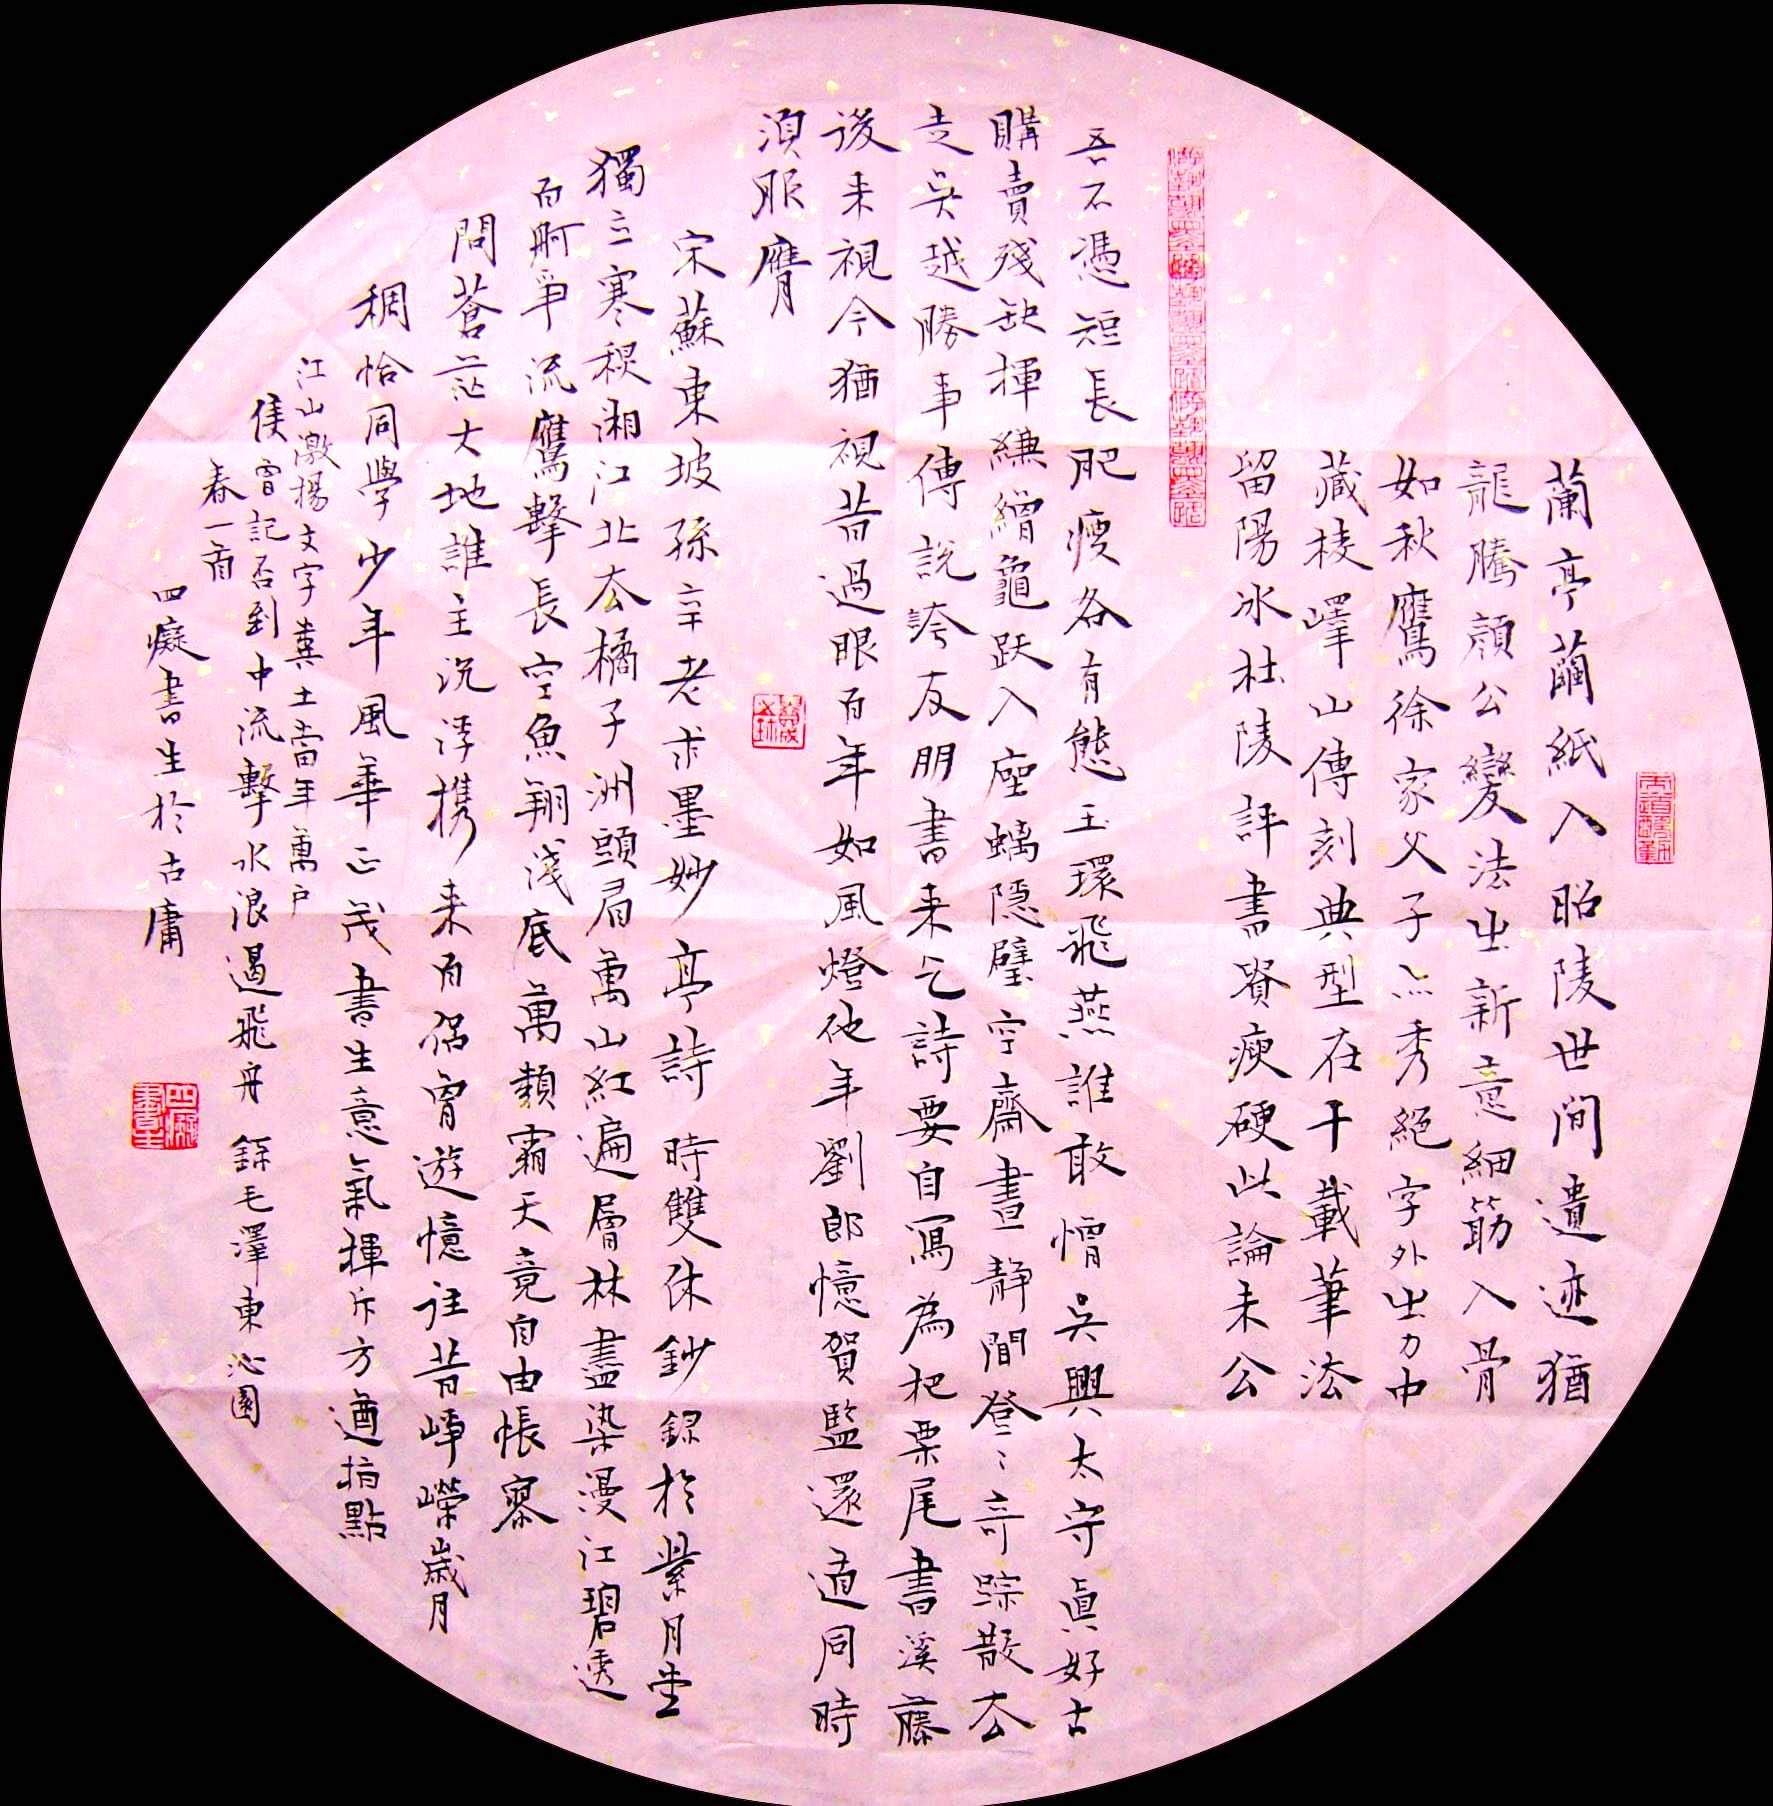 蘭亭繭紙入昭陵世間遺迹猶
龍騰顔公變法出新意細筋入骨
如秋鷹徐家父子亦秀絕字外出力中
藏棱嶧山傳刻典型在千載筆法
留陽冰杜陵評書貴瘦硬此論未公
吾不憑短長肥瘦各有態玉環飛燕誰敢憎吳興太守真好古
購賣殘缺揮縑繒龜趺入座螭隱壁空齋晝静聞登々奇踪散去
走吳越勝事傳說誇友朋書來乞詩要自寫為把栗尾書溪藤
後来視今猶視昔過眼百年如風燈他年劉郎憶賀監還道同時
須服膺
宋蘇東坡孫莘老求墨妙亭詩 時雙休鈔錄於紫月堂
獨立寒秋湘江北去橘子洲頭看萬山紅遍層林盡染漫江碧透
百舸爭流鷹擊長空魚翔淺底萬類霜天競自由悵寥
問蒼茫大地誰主沉浮携來百侶曾遊憶往昔崢嶸歲月
稠恰同學少年風華正茂書生意氣揮斥方遒指點
江山激揚文字糞土當年萬户
侯曾記否到中流擊水浪遏飛舟 錄毛澤東沁園
春一首
四癡書生於古庸
四癡書生